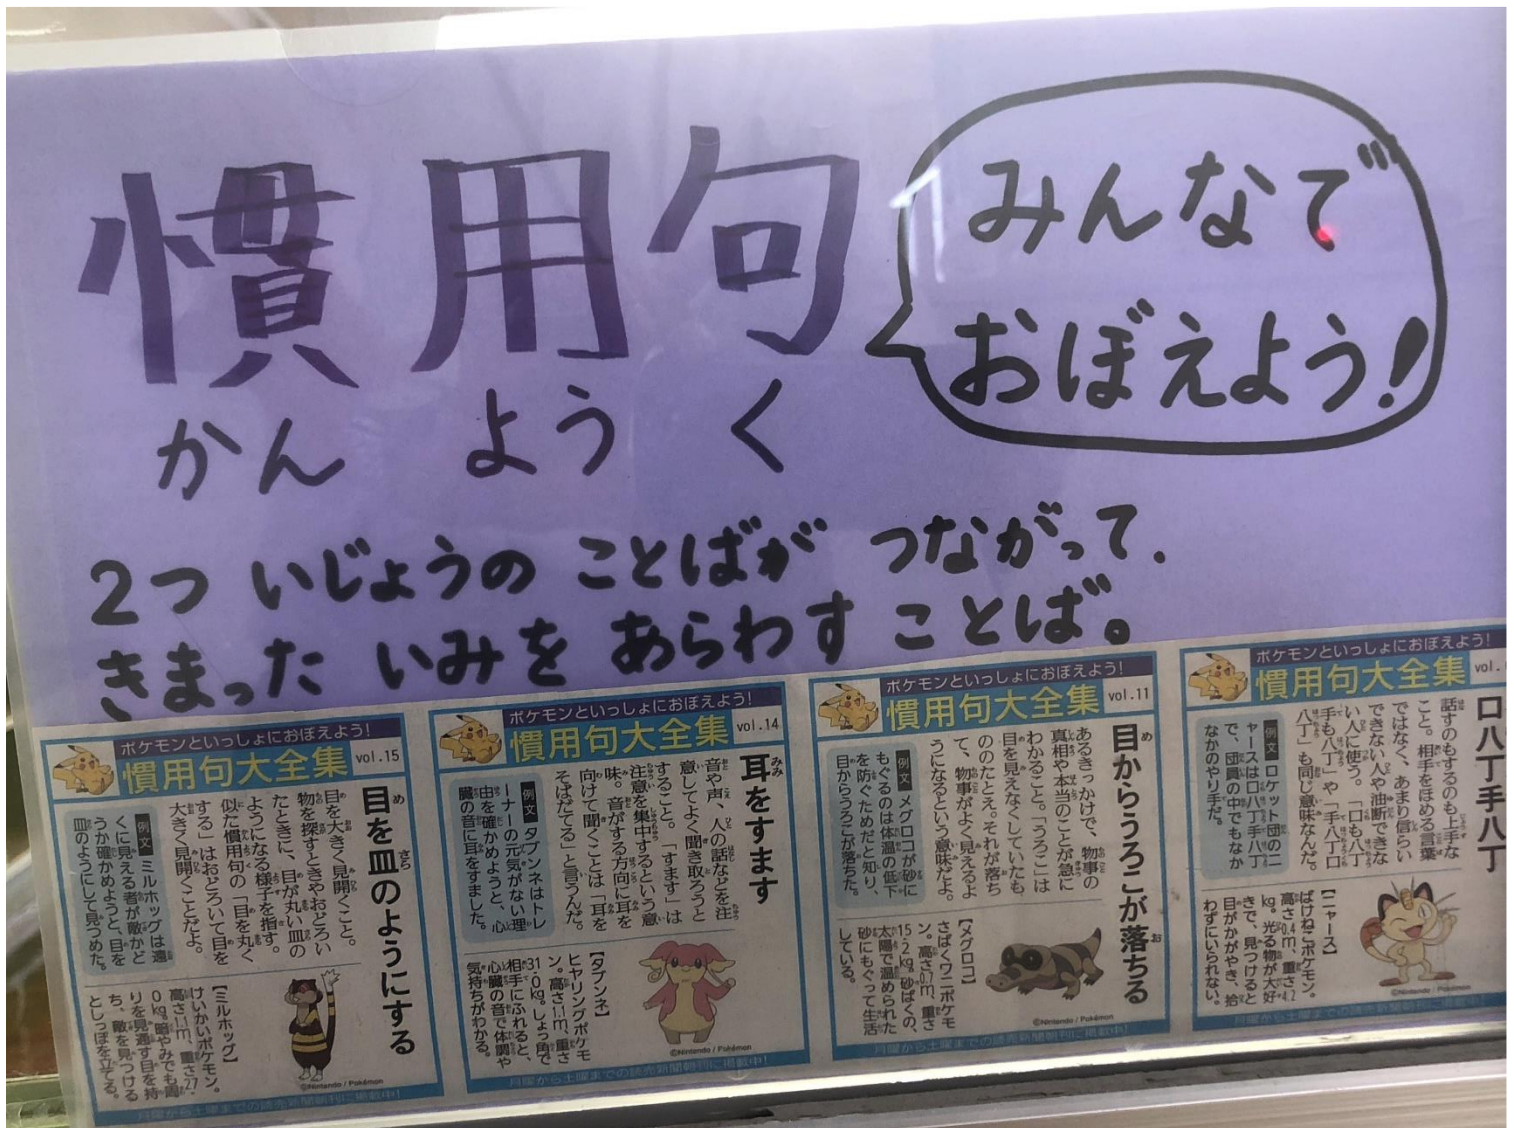 慣用句
かんようく
みんなで
おぼえよう!
2つ いじょうの ことばが つながって、
きまった いみを あらわす ことば。
ポケモンといっしょにおぼえよう!
慣用句大全集
vol.15
目を皿のようにする
目を大きく見開くこと。
物を探すときやおどろい
たときに、目が丸い皿の
ようになる様子を指す。
似た慣用句の「目を丸く
する」はおどろいて目を
大きく見開くことだよ。
例文 ミルホッグは遠
くに見える者が敵かど
うか確かめようと、目を
皿のようにして見つめた。
【ミルホッグ】
けいかいポケモン。
高さ1.1m、重さ27.
0kg。暗やみでも周
りを見通す目を持
ち、敵を見つける
としっぽを立てる。
©Nintendo / Pokémon
月曜から土曜までの読売新聞朝刊に掲載中!
ポケモンといっしょにおぼえよう!
慣用句大全集
vol.14
耳をすます
音や声、人の話などを注
意してよく聞き取ろうと
すること。「すます」は
注意を集中するという意
味。音がする方向に耳を
向けて聞くことは「耳を
そばだてる」と言うんだ。
例文 タブンネはトレ
ーナーの元気がない理
由を確かめようと、心
臓の音に耳をすました。
【タブンネ】
ヒヤリングポケモ
ン。高さ1.1m、重さ
31.0kg。しょっ角で
相手にふれると、
心臓の音で体調や
気持ちがわかる。
©Nintendo / Pokémon
月曜から土曜までの読売新聞朝刊に掲載中!
ポケモンといっしょにおぼえよう!
慣用句大全集
vol.11
目からうろこが落ちる
あるきっかけで、物事の
真相や本当のことが急に
わかること。「うろこ」は
目を見えなくしていたも
ののたとえ。それが落ち
て、物事がよく見えるよ
うになるという意味だよ。
例文 メグロコが砂に
もぐるのは体温の低下
を防ぐためだと知り、
目からうろこが落ちた。
【メグロコ】
さばくワニポケモ
ン。高さ0.7m、重さ
15.2kg。砂ばくの、
太陽で温められた
砂にもぐって生活
している。
©Nintendo / Pokémon
月曜から土曜までの読売新聞朝刊に掲載中!
ポケモンといっしょにおぼえよう!
慣用句大全集
vol.
口八丁手八丁
話すのもするのも上手な
こと。相手をほめる言葉
ではなく、あまり信らい
できない人や油断できな
い人に使う。「口も八丁
手も八丁」や「手八丁口
八丁」も同じ意味なんだ。
例文 ロケット団のニ
ャースは口八丁手八丁
で、団員の中でもなか
なかのやり手だ。
【ニャース】
ばけねこポケモン。
高さ0.4m、重さ4.2
kg。光る物が大好
きで、見つけると
目がかがやき、拾
わずにいられない。
©Nintendo / Pokémon
月曜から土曜までの読売新聞朝刊に掲載中!